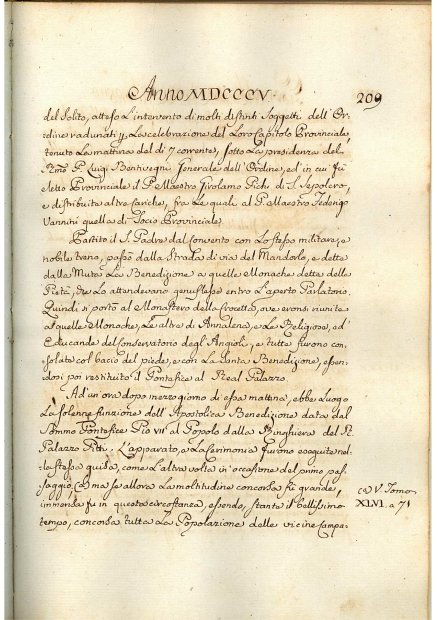 Anno MDCCCV.
209
del Solito, atteso l'intervento di molti distinti Soggetti dell'Or=
=dine radunati p. la celebrazione del Loro Capitolo Provinciale
tenuto La mattina del dì 7 corrente, sotto La presidenza del
Rmo P. Luigi Bentivegni Generale dell'Ordine, ed in cui fu
eletto Provinciale il P. Maestro Girolamo Pichi di S. Sepolcro,
e distribuite altre Cariche, fra Le quali al P. Maestro Federigo
Vannini quella di Socio Provinciale.
Partito il S. Padre dal Convento con Lo stesso militare, e
nobile treno, passò dalla Strada di via del Mandorlo, e dette
dalla Muta La Benedizione a quelle Monache dette della
Pietà, che Lo attendevano genuflesse entro L'aperto Parlatorio.
Quindi si portò al Monastero della Crocetta, ove eronsi riunite
a quelle Monache, Le altre di Annalena, e Le Religiose, ed
Educande del Conservatorio degli Angioli, e tutte furono con=
=solate col bacio del piede, e con La Santa Benedizione, essen=
=dosi poi restituito il Pontefice al Real Palazzo.
Ad un'ora dopo mezzogiorno di essa mattina, ebbe Luogo
La solenne funzione dell'Apostolica Benedizione data dal
Sommo Pontefice Pio VII al Popolo dalla Ringhiera del R.
Palazzo Pitti. L'apparato, e La Cerimonia furono eseguite nel=
=la stessa guisa, come L'altra volta in occasione del primo pas=
=saggio, (a) ma se allora La moltitudine concorsa fu grande,
immensa fu in questa circostanza, essendo, stante il bellissimo
tempo, concorsa tutta La Popolazione delle vicine Campa=
(a) V. Tomo
XLVI. a 71